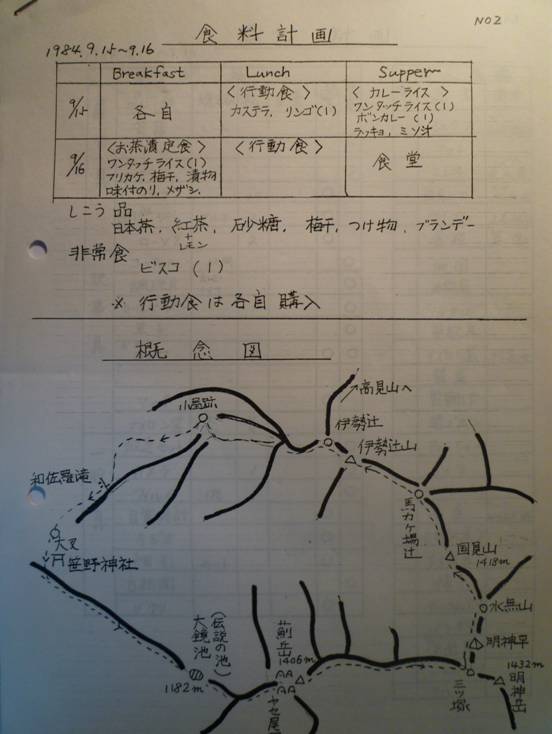 NO2
食料計画
1984.9.15~9.16
Breakfast Lunch Supper
9/15 各自 〈行動食〉 〈カレーライス〉
カステラ, リンゴ(1) ワンタッチライス(1)
ボンカレー(1)
ラッキョ, ミソ汁
9/16 〈お茶漬定食〉 〈行動食〉 食堂
ワンタッチライス(1)
フリカケ, 梅干, 漬物
味付のり, メザシ,
しこう品
日本茶, 紅茶, 砂糖, 梅干, つけ物, ブランデー
+
レモン
非常食
ビスコ(1)
※ 行動食は各自購入
概念図
高見山へ
伊勢辻
伊勢辻山
和佐羅滝
馬カケ場辻
大又
笹野神社
国見山
1418m
水無山
明神平
(伝説の池)
大鏡池
1182m
薊岳
1406m
ヤセ尾
三ツ塚
1432m
明神岳